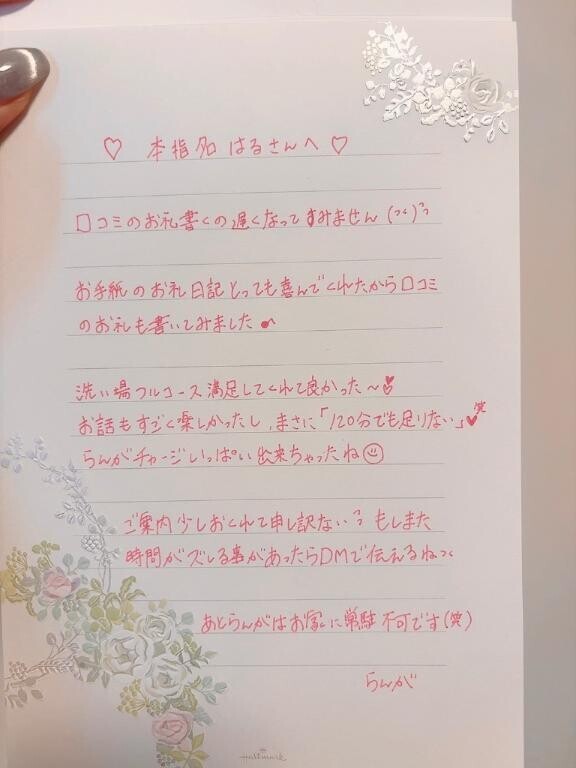 ♡ 本指名 はるさんへ ♡
口コミのお礼書くの遅くなってすみません(つく)つ
お手紙のお礼日記とっても喜んでくれたから口コミ
のお礼も書いてみました♪
洗い場フルコース満足してくれて良かった〜
お話もすごく楽しかったし、まさに「120分でも足りない」笑
らんがチャージいっぱい出来ちゃったね☺
ご案内少しおくれて申し訳ない もしまた
時間がズレる事があったらDMで伝えるね
あとらんがはお家に常駐不可です(笑)
らんが
Hallmark